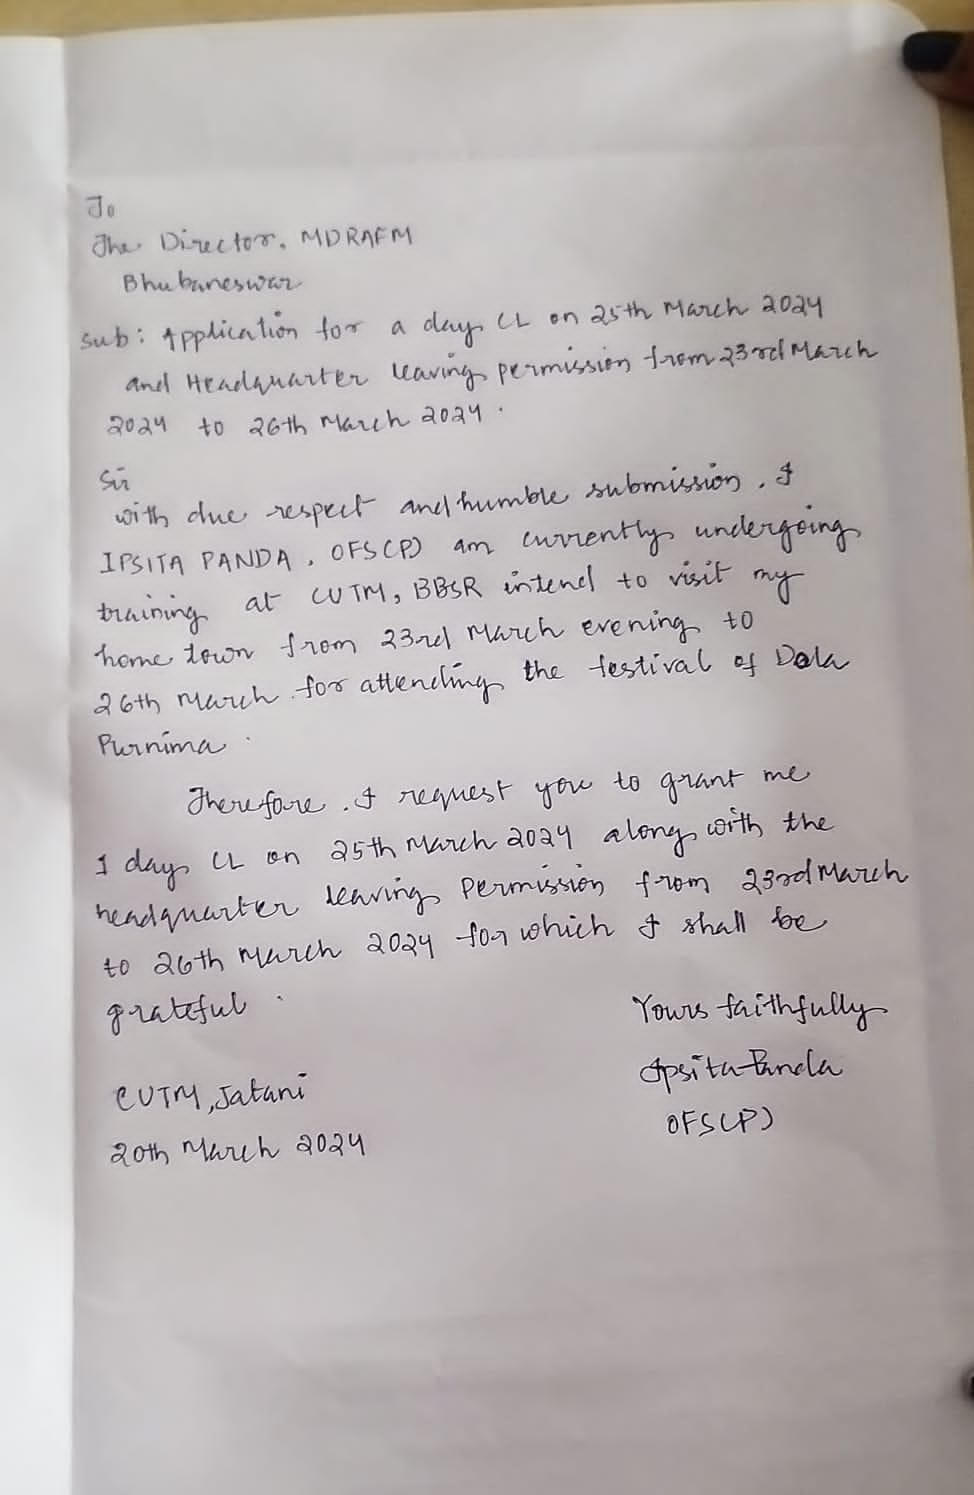 To
The Director, MDRAFM
Bhubaneswar
Sub: Application for a day CL on 25th March 2024
and Headquarter leaving permission from 23rd March
2024 to 26th March 2024.
Sir
with due respect and humble submission, I
IPSITA PANDA, OFS(P) am currently undergoing
training at CUTM, BBSR intend to visit my
home town from 23rd March evening to
26th March for attending the festival of Dola
Purnima.
Therefore, I request you to grant me
1 day CL on 25th March 2024 along with the
headquarter leaving permission from 23rd March
to 26th March 2024 for which I shall be
grateful.
Yours faithfully
Ipsita Panda
OFS(P)
CUTM, Jatani
20th March 2024